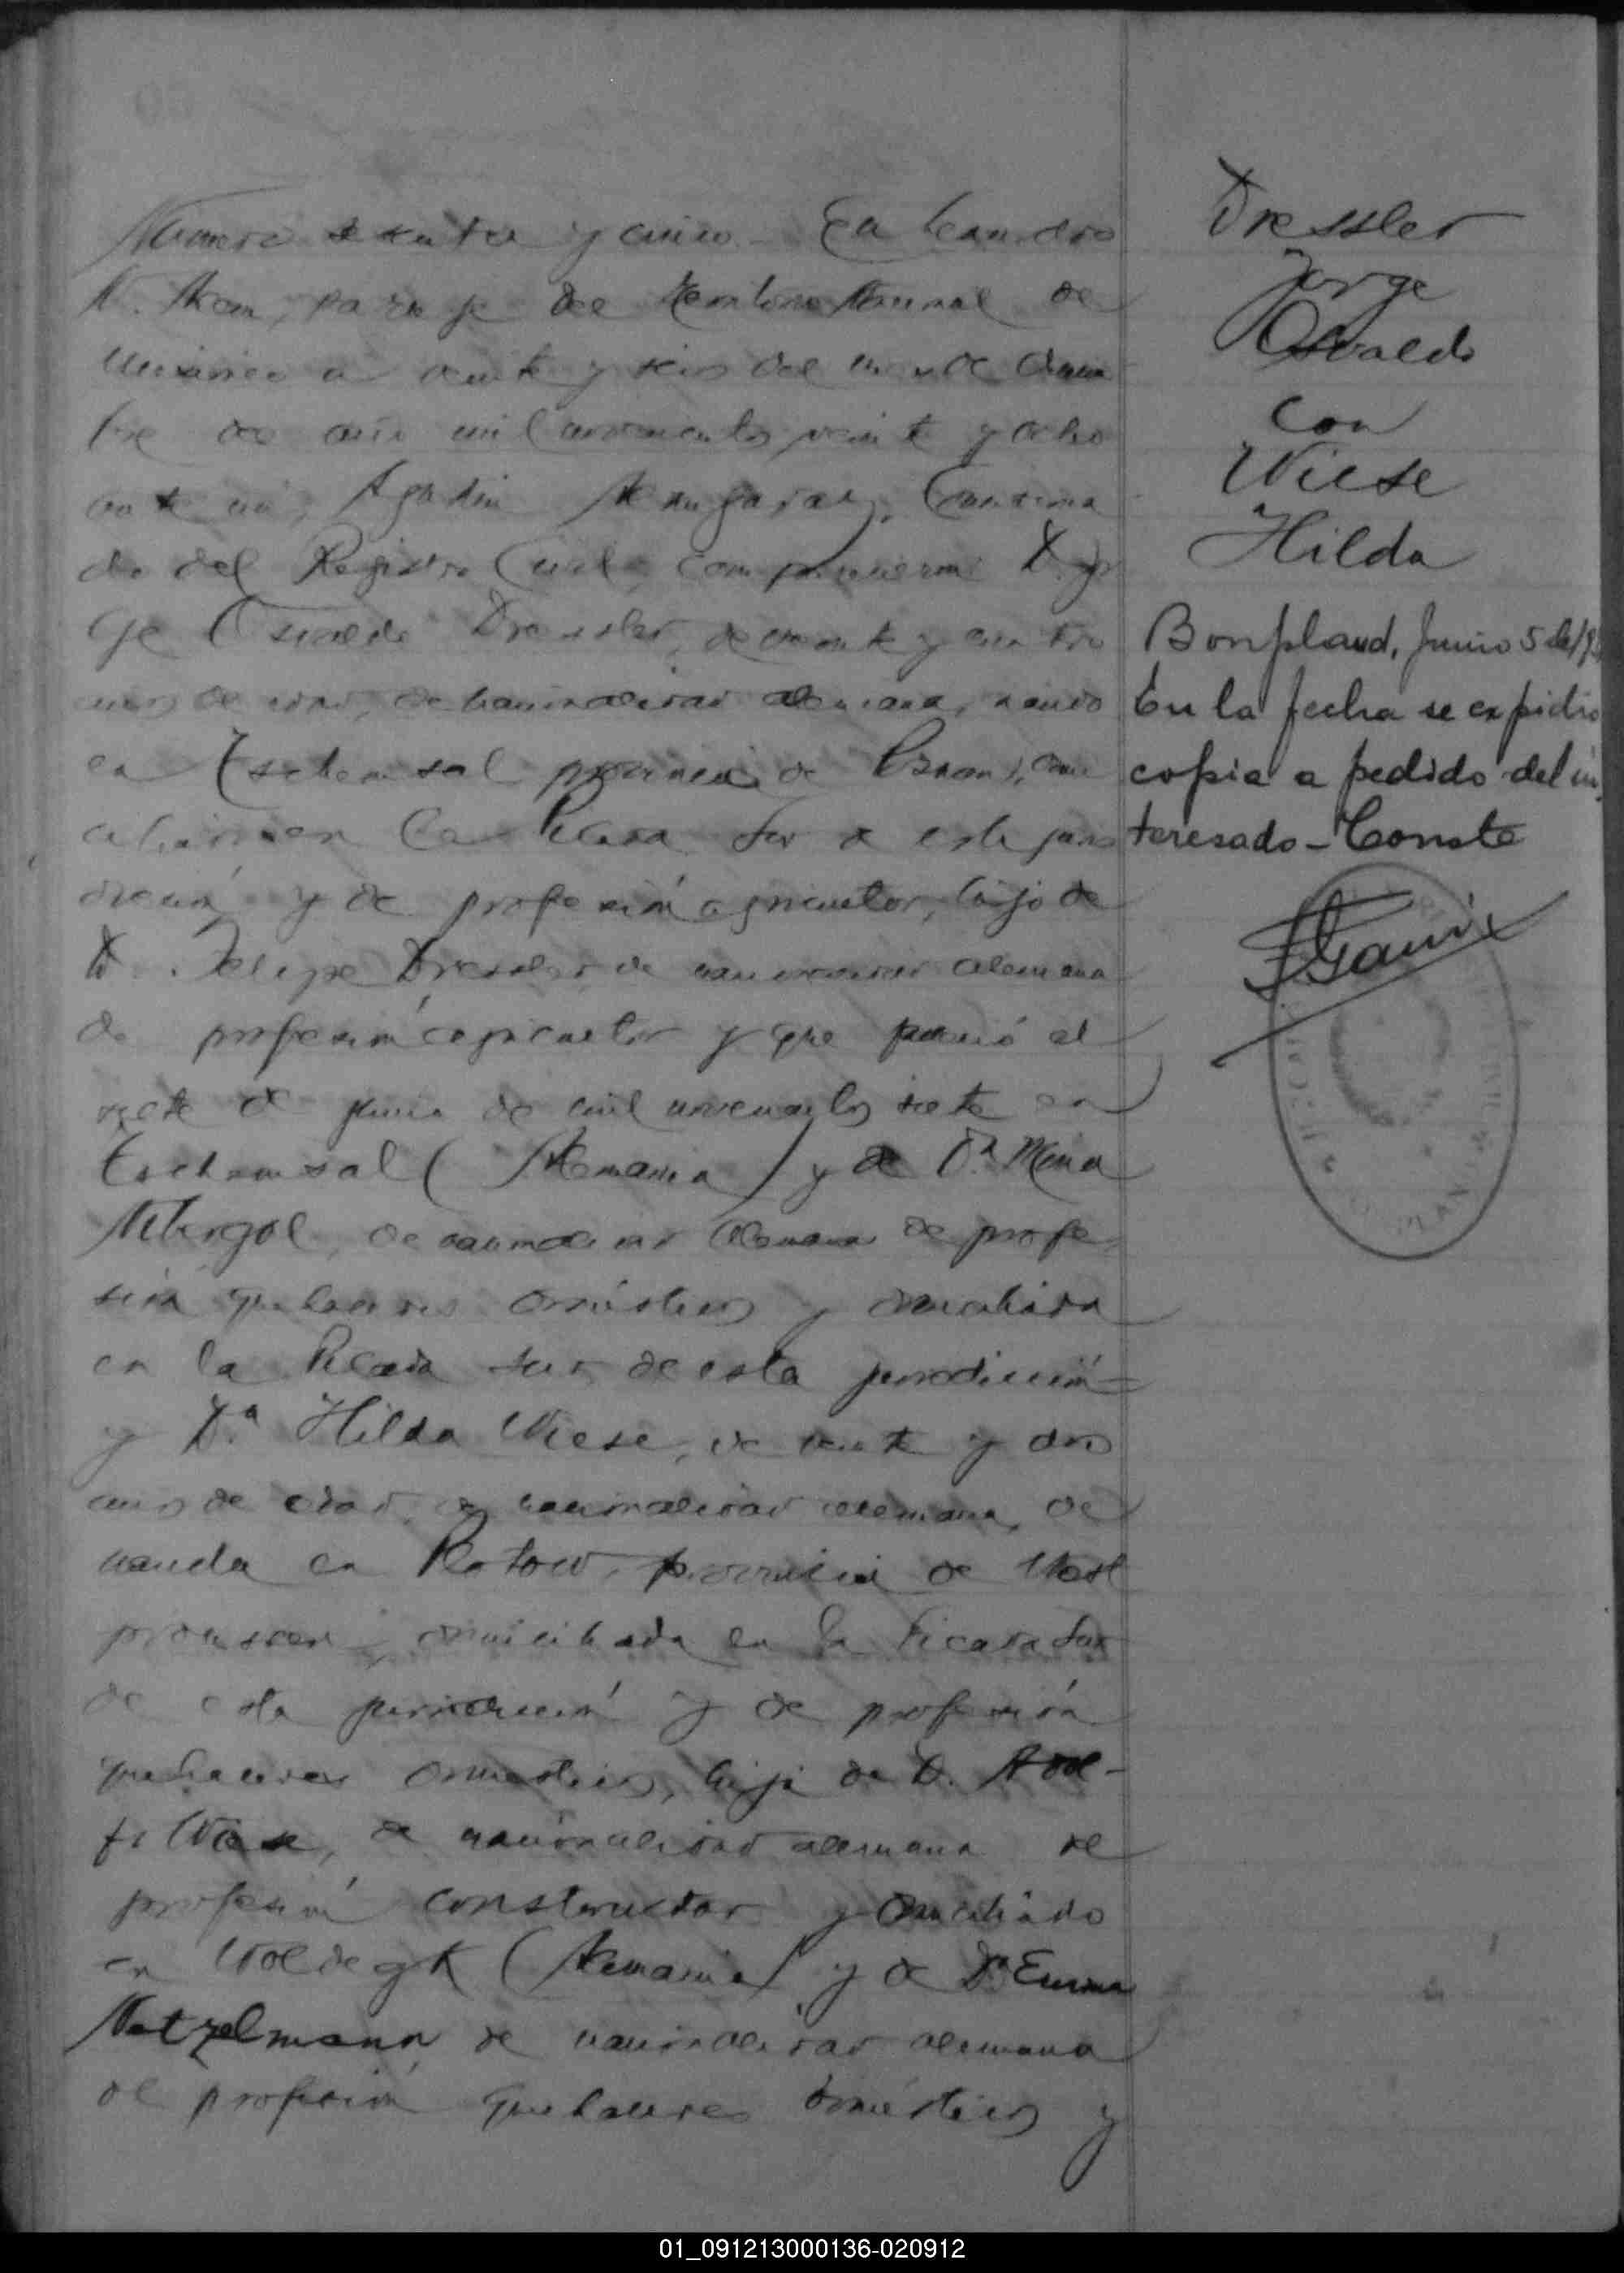 Numero sesenta y cinco - En Leandro
N. Alem, paraje del Territorio Nacional de
Misiones a veinte y seis del mes de
bre de año mil novecientos veinte y ocho
ante mi, Agustin Encarga
do del Registro Civil, comparecieron D. Jor
ge Osvaldo Dressler, de veinte y cuatro
años de edad, de nacionalidad alemana, nacido
en provincia de domi
ciliado en la Picada Sur de esta juris
dicción y de profesión agricultor, hijo de
D. Felipe Dressler, de nacionalidad alemana
de profesión agricultor y que falleció el
siete de junio de mil novecientos siete en
(Alemania) y de Da. Mina
de nacionalidad alemana de profe
sión quehaceres domésticos y domiciliada
en la Picada Sur de esta jurisdicción
y Da. Hilda Wiese, de veinte y dos
años de edad, de nacionalidad alemana, de
nacida en provincia de West
preussen, domiciliada en la Picada Sur
de esta jurisdicción y de profesión
quehaceres domesticos, hija de D. Adol-
fo Wiese, de nacionalidad alemana de
profesión constructor y domiciliado
en Woldegk (Alemania) y de Da. Emma
Natzelmann de nacionalidad alemana
de profesión quehaceres domésticos y
Dressler
Jorge
Osvaldo
con
Wiese
Hilda
Bonpland, Junio 5 de
En la fecha se expidio
copia a pedido del in-
teresado - Conste
01_091213000136-020912